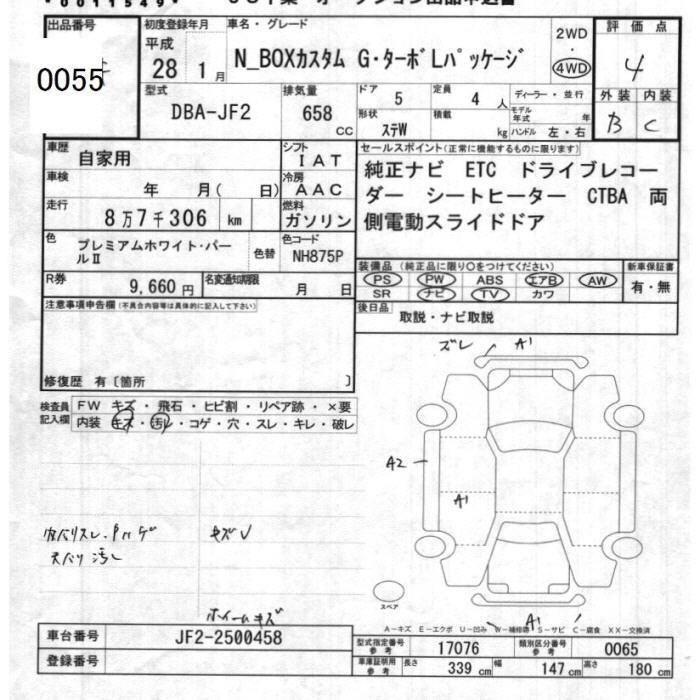 0011549
出品番号 初度登録年月 車名・グレード 2WD・4WD 評価点
0055 平成28 1月 N_BOXカスタム G・ターボLパッケージ 4
型式 排気量 ドア 5 定員 4人 ディーラー・並行 外装 内装
DBA-JF2 658cc 形状 ステW 積載 kg モデル年式 年 ハンドル 左・右 B C
車歴 自家用 シフト IAT セールスポイント(正常に機能するものに限ります)
車検 年 月( 日) 冷房 AAC 純正ナビ ETC ドライブレコー
走行 8万7千306 km 燃料 ガソリン ダー シートヒーター CTBA 両
側電動スライドドア
色 プレミアムホワイト・パールⅡ 色替 色コード NH875P
装備品(純正品に限り○をつけてください) 新車保証書
R券 9,660円 名変通知期限 月 日 PS PW ABS エアB AW 有・無
SR ナビ TV カワ
注意事項申告欄(不具合内容等は具体的に記入して下さい)
後日品 取説・ナビ取説
修復歴 有〔箇所 〕
ズレ A1
検査員記入欄 FW キズ・飛石・ヒビ割・リペア跡・×要
内装 キズ・汚・コゲ・穴・スレ・キレ・破レ
A2
A1
キズ
汚レ
スペア
ホイールキズ
A1
A-キズ E-エクボ U-凹み W-補修跡 S-サビ C-腐食 XX-交換済
車台番号 JF2-2500458 型式指定番号 参考 17076 類別区分番号 参考 0065
登録番号 車庫証明用 参考 長さ 339cm 幅 147cm 高さ 180cm